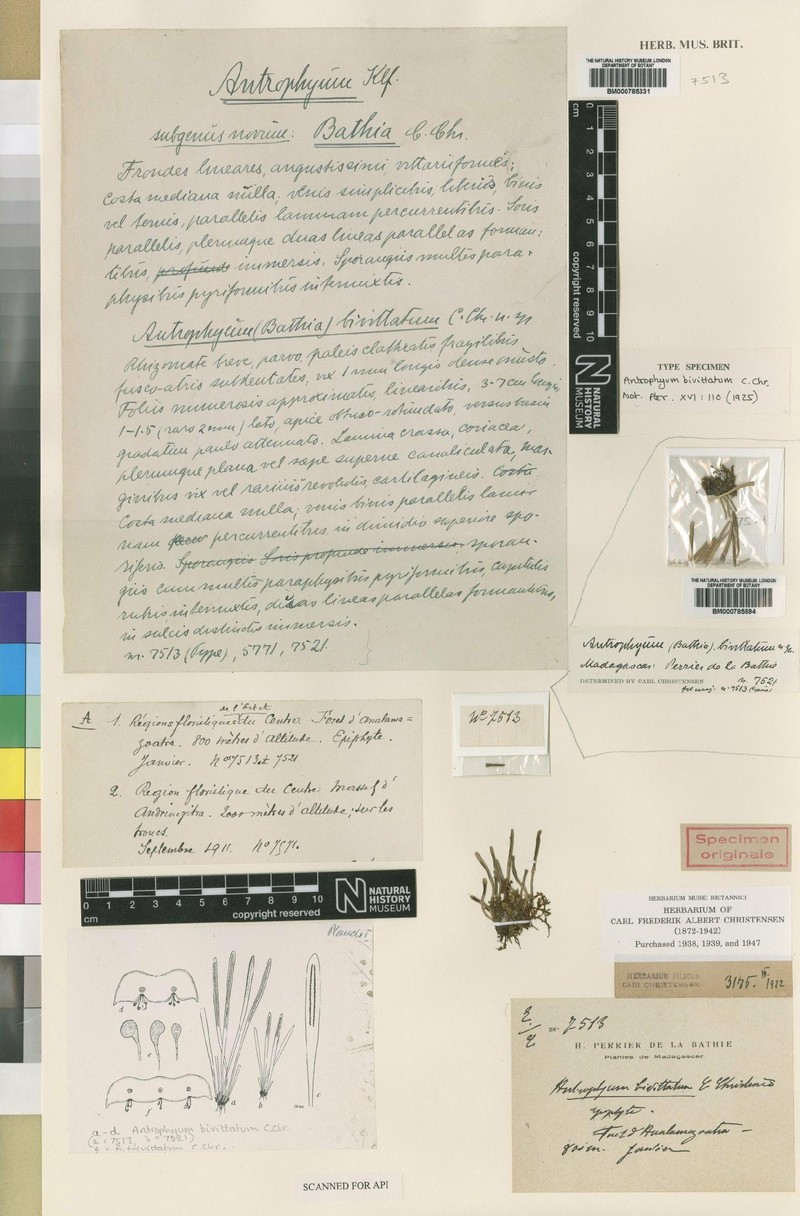 HERB. MUS. BRIT.
THE NATURAL HISTORY MUSEUM, LONDON
DEPARTMENT OF BOTANY
BM000785331
7513
Antrophyum Klf.
subgenus novum: Bathia C. Chr.
Frondes lineares, angustissimi, vittariiformes;
Costa mediana nulla, venis simplicibus, liberis, binis
vel ternis, parallelis laminam percurrentibus. Soris
parallelis, plerumque duas lineas parallelas forman:
tibus, profunde immersis. Sporangiis multis para-
physibus pyriformibus intermixtis.
Antrophyum (Bathia) bivittatum C. Chr. n. sp
Rhizomate breve, parvo, paleis clathratis fragilibus
fusco-atris subdentates, vix 1 mm longis dense
Foliis numerosis approximatis, linearibus, 3-7 cm longis,
1-1.5 (raro 2 mm) lato, apice obtuso-rotundato, versus basin
gradatum paulo attenuato. Lamina crassa, coriacea,
plerumque plana vel sæpe superne canaliculata, mar-
ginibus vix vel rariusrevolutis, cartilagineis. Costa
Costa mediana nulla; venis binis parallelis lami-
nam percurrentibus in dimidio superiore spo-
riferis. Sporangiis Soris profunde immersis, sporan-
giis cum multis paraphysibus pyriformibus, capitulis
rubris intermixtis, duas lineas parallelas formantibus,
in sulcis distinctis immersis.
nr. 7513 (Type), 5771, 7521.
cm
0
1
2
3
4
5
6
7
8
9
10
copyright reserved
NATURAL
HISTORY
MUSEUM
TYPE SPECIMEN
Antrophyum bivittatum C. Chr.
Not. Pter. XVI: 110 (1925)
THE NATURAL HISTORY MUSEUM, LONDON
DEPARTMENT OF BOTANY
BM000785594
Antrophyum (Bathia) bivittatum n. sp.
Madagascar: Perrier de la Bathie
n. 7521
DETERMINED BY CARL CHRISTENSEN
No 7513
de l'Est et
A 1. Régions floristique du Centre Foret d'Analama=
zoatra. 800 mètres d'altitude. Epiphyte.
Janvier. Nos 7513 et 7521
2. Region floristique du Centre Massif d'
Andringitra. 2000 mètres d'altitude, sur les
troncs.
Septembre 1911. No 7571.
0 1 2 3 4 5 6 7 8 9 10
cm
copyright reserved
NATURAL
HISTORY
MUSEUM
Planche I
a-d Antrophyum bivittatum C.Chr.
(a = 7513, b = 7521)
e = A. trivittatum C. Chr.
Specimen
originale
HERBARIUM MUSEI BRITANNICI
HERBARIUM OF
CARL FREDERIK ALBERT CHRISTENSEN
(1872-1942)
Purchased 1938, 1939, and 1947
HERBARIUM FILICUM
CARL CHRISTENSEN
3175. 1922
n° 7513
H. PERRIER DE LA BATHIE
Plantes de Madagascar
Antrophyum bivittatum C Christensen
epiphyte.
Foret d'Analamazoatra –
800 m. Janvier
SCANNED FOR API